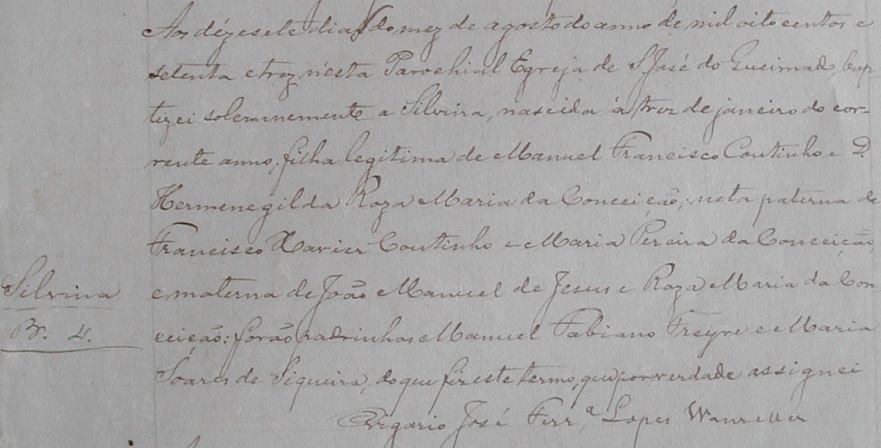 Aos dézesete dias do mez de agosto do anno de mil oito centos e
setenta e trez n'esta Parochial Egreja de S. José do Queimado, bap
tizei solemnemente a Silvina, nascida á trez de janeiro do cor-
rente anno, filha legitima de Manuel Francisco Coutinho e D.
Hermenegilda Roza Maria da Conceição; neta paterna de
Francisco Xavier Coutinho e Maria Pereira da Conceição,
e materna de João Manuel de Jesus e Roza Maria da Con
ceição: forão padrinhos Manuel Fabiano Freyre e Maria
Soares de Siqueira, do que fiz este termo, que por verdade assignei
Vigario José Ferr.ª Lopes Wanzeller
Silvina
B. 4.